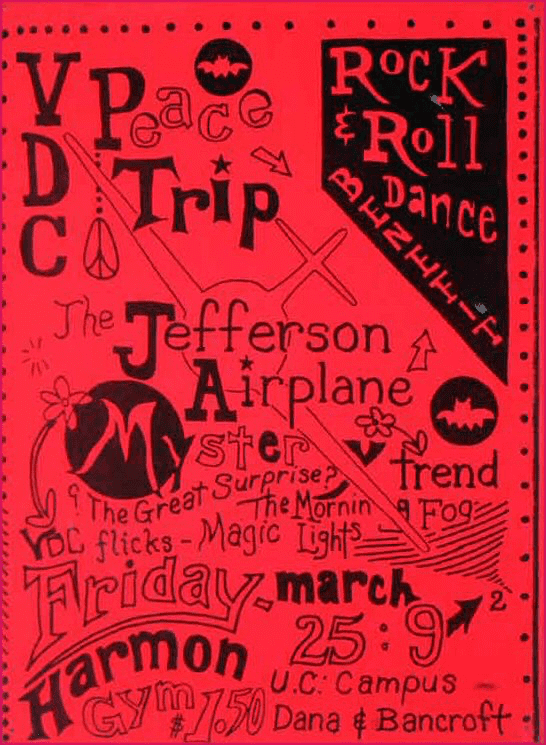 VDC
Peace
Trip
Rock
& Roll
Dance
BENEFIT
The Jefferson
Airplane
Mystery trend
? The Great Surprise?
The Mornin
g Fog
VDC flicks - Magic Lights
Friday - march
25 : 9 → 2
Harmon
Gym $1.50
U.C. Campus
Dana & Bancroft